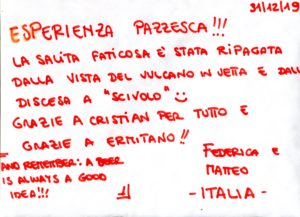 31/12/19
ESPERIENZA PAZZESCA!!!
LA SALITA FATICOSA È STATA RIPAGATA
DALLA VISTA DEL VULCANO IN VETTA E DALLA
DISCESA A "SCIVOLO" ☺
GRAZIE A CRISTIAN PER TUTTO E
GRAZIE A ERMITANO!!
AND REMEMBER: A BEER
IS ALWAYS A GOOD
IDEA!!!
FEDERICA E
MATTEO
- ITALIA -